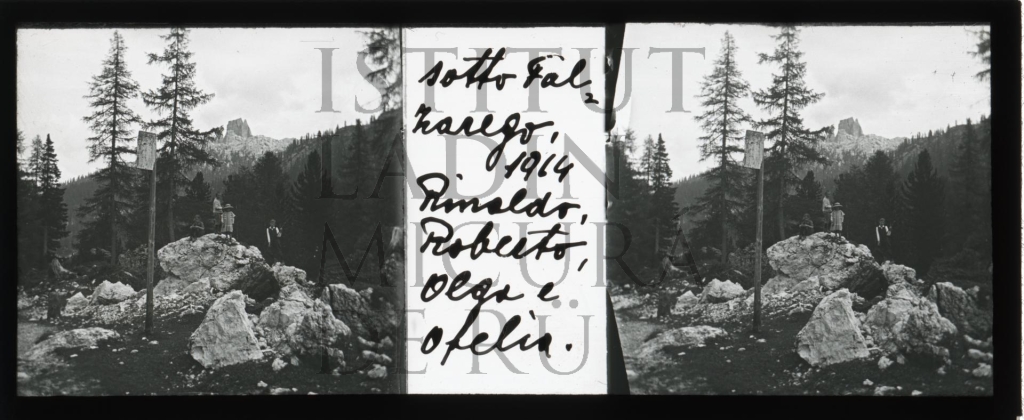 sotto Fal=
zarego,
1914
Rinaldo,
Roberto,
Olga e
Ofelia.
ISTITUT
LADIN
MICURÁ
DE RÜ